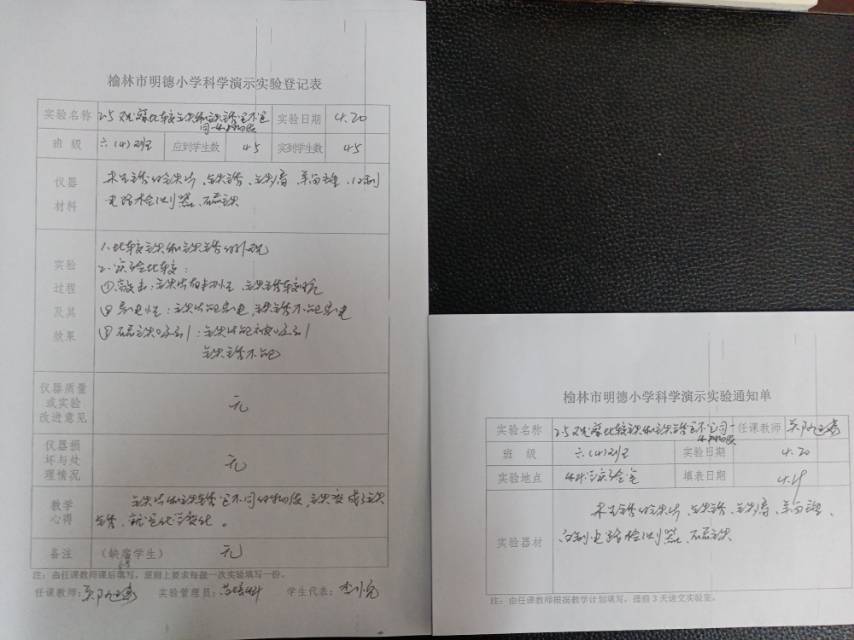 榆林市明德小学科学演示实验登记表
实验名称 2.5观察比较铁和铁锈是不是
同一种物质 实验日期 4.20
班 级 六(4)班 应到学生数 45 实到学生数 45
仪器
材料
未生锈的铁片、铁锈、铁
电路检测器、磁铁
实验
过程
及其
效果
1.比较铁和铁锈的外观
2.实验比较:
①敲击:铁片有韧性、铁锈较脆
导电性:铁片能导电,铁锈不能导电
磁铁吸引:铁片能被吸引
铁锈不能
仪器质量
或实验
改进意见
无
仪器损
坏与处
理情况
无
教学
心得
铁片和铁锈是不同的物质,铁变成了铁
锈,就是化学变化。
备注 (缺席学生) 无
注:由任课教师课后填写,原则上要求每做一次实验填写一份。
任课教师: 实验管理员: 学生代表:
榆林市明德小学科学演示实验通知单
实验名称 2.5观察比较铁和铁锈是不是同一
种物质 任课教师
班 级 六(4)班 实验日期 4.20
实验地点 科学实验室 填表日期 4.19
实验器材
未生锈的铁片、铁锈、铁
自制电路检测器、磁铁
注:由任课教师根据教学计划填写,提前3天送交实验室。